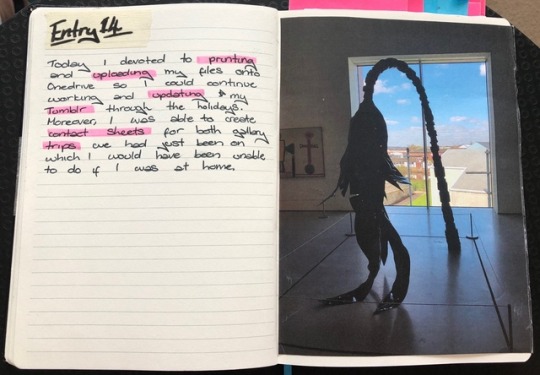 Entry 14
Today I devoted to prunting
and uploading my files onto
Onedrive so I could continue
working and updating my
Tumblr through the holidays.
Moreover, I was able to create
contact sheets for both gallery
trips we had just been on
which I would have been unable
to do if I was at home.